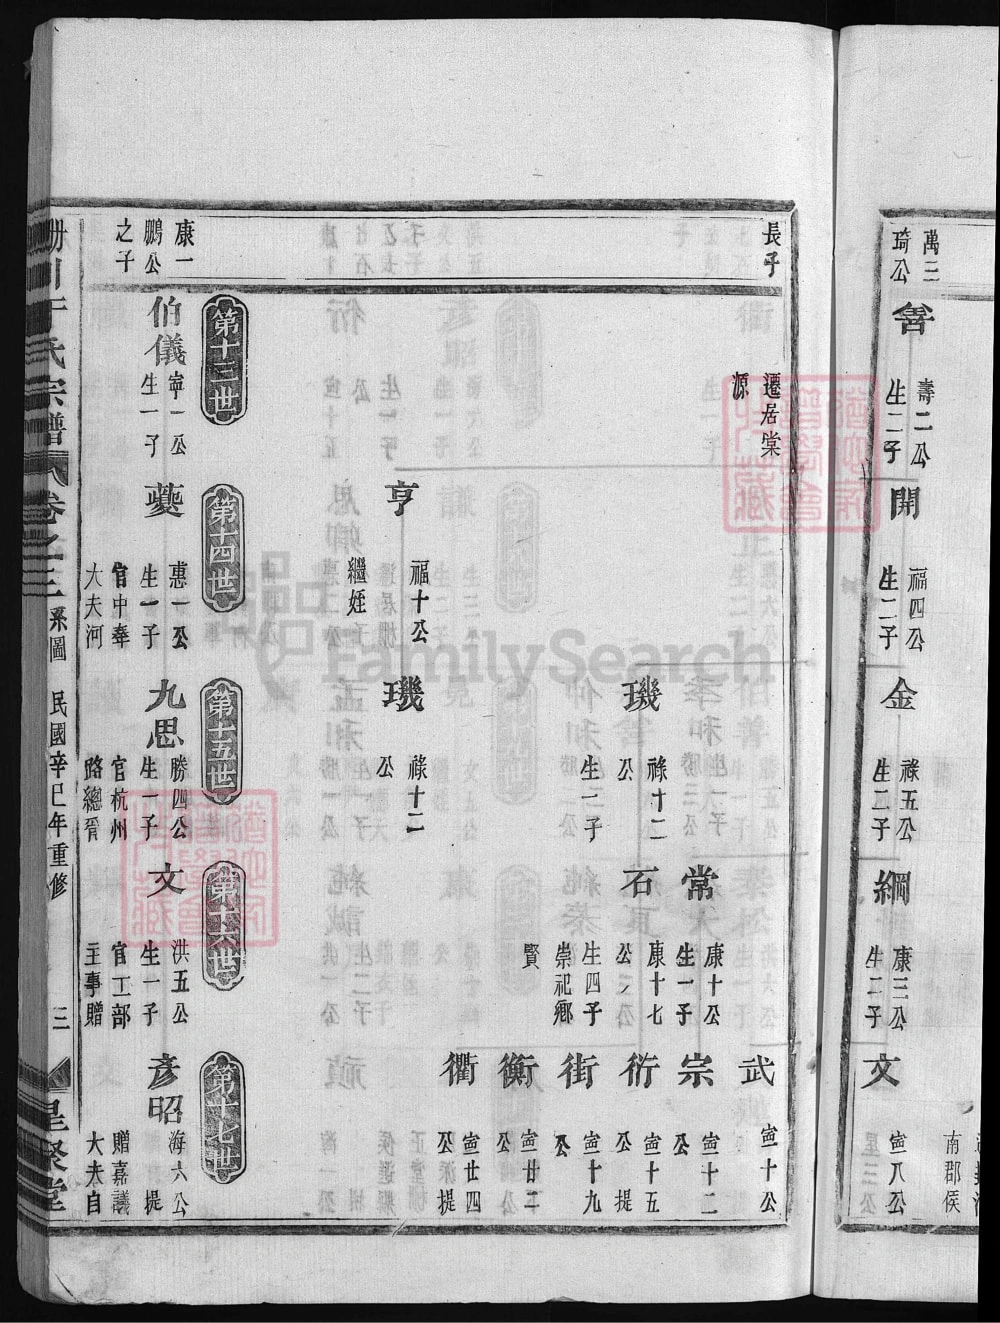 萬三
琦公
譽
壽二公
生二子
開
福四公
生二子
金
祿五公
生二子
綱
康三公
生二子
文
啚八公
南郡侯
長子
遷居棠
源
亨
福十公
繼姪
璣
祿十二
公
璣
祿十二
公
生一子
常
康十公
生一子
石
康十七
公
生四子
崇祀鄉
賢
武
啚十公
宗
啚十二
公
衍
啚十五
公 提
街
啚十九
公
衡
啚廿三
公
衢
啚廿四
公 提
第十三世
第十四世
第十五世
第十六世
第十七世
康一
鵬公
之子
伯儀
寧一公
生一子
夔
惠一公
生一子
官中奉
大夫河
九思
勝四公
生一子
官杭州
路總管
文
洪五公
生一子
官工部
主事贈
彥昭
海六公
提
贈嘉議
大夫自
于氏宗譜
卷之三
系圖
民國辛巳年重修
三
星聚堂
FamilySearch